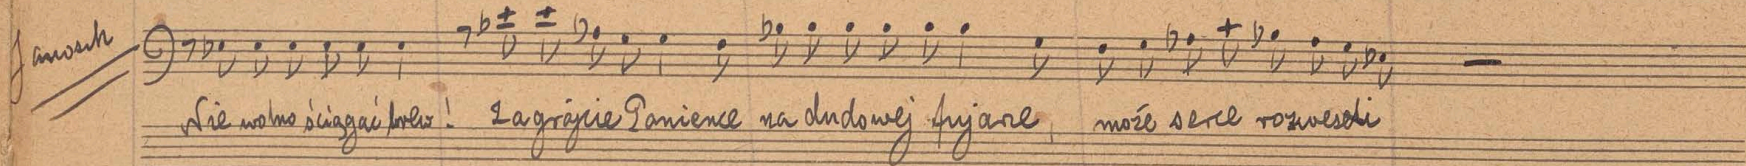 Janosik
Nie wolno ściągać brew! Zagrajcie Panience na dudowej fujarze, może serce rozweseli